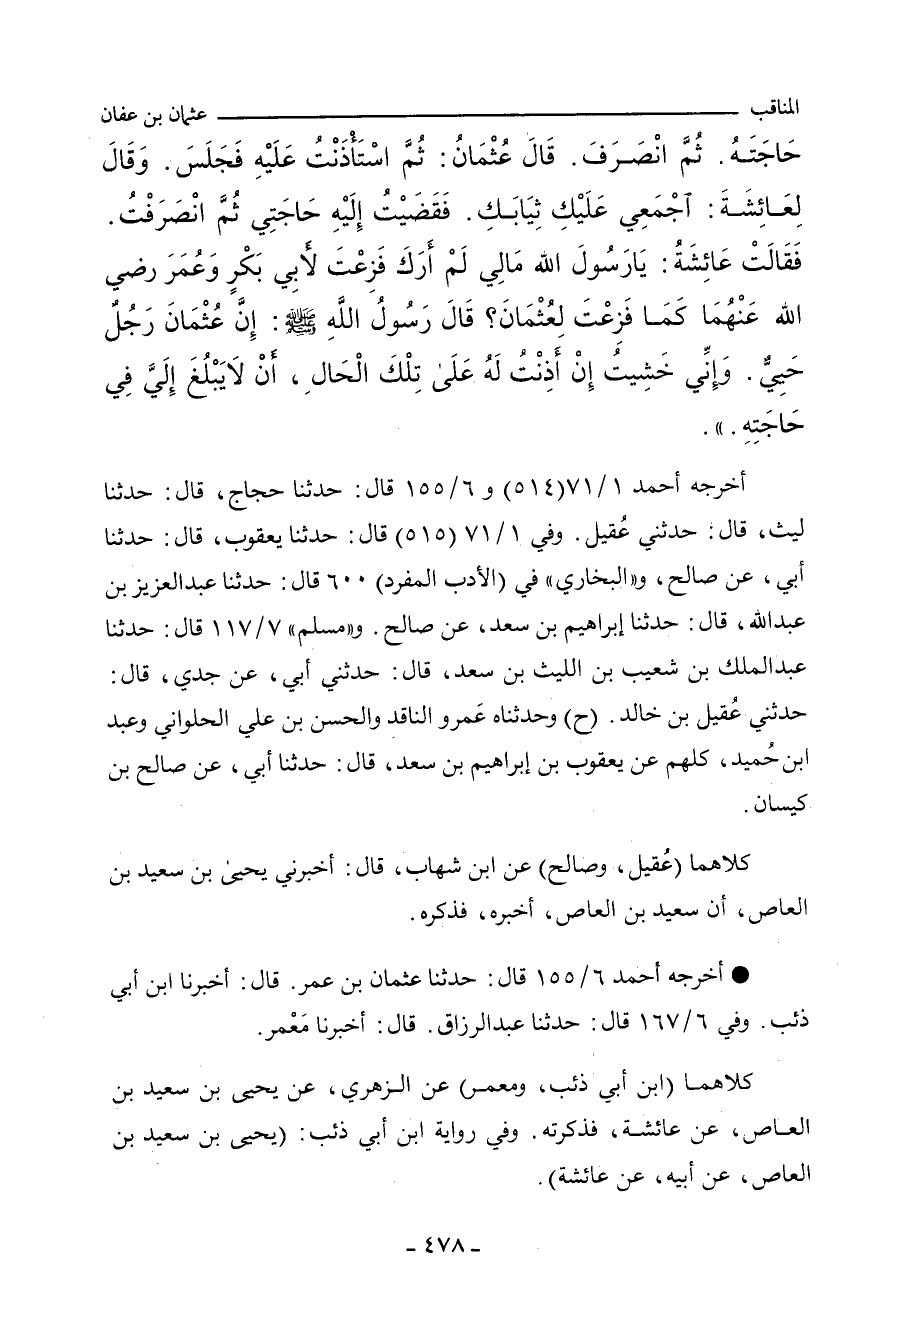 المناقب ــــــــــــ عثمان بن عفان
حَاجَتَهُ. ثُمَّ انْصَرَفَ. قَالَ عُثْمَانُ: ثُمَّ اسْتَأْذَنْتُ عَلَيْهِ فَجَلَسَ. وَقَالَ
لِعَائِشَةَ: آجْمَعِي عَلَيْكِ ثِيَابَكِ. فَقَضَيْتُ إِلَيْهِ حَاجَتِي ثُمَّ انْصَرَفْتُ.
فَقَالَتْ عَائِشَةُ: يَارَسُولَ الله مَالِي لَمْ أَرَكَ فَزِعْتَ لأَبِي بَكْرٍ وَعُمَرَ رضي
الله عَنْهُمَا كَمَا فَزِعْتَ لِعُثْمَانَ؟ قَالَ رَسُولُ اللَّهِ ﷺ: إِنَّ عُثْمَانَ رَجُلٌ
حَيِيٌّ. وَإِنِّي خَشِيتُ إِنْ أَذِنْتُ لَهُ عَلَىٰ تِلْكَ الْحَالِ، أَنْ لَايَبْلُغَ إِلَيَّ فِي
حَاجَتِهِ.».
أخرجه أحمد ٧١/١(٥١٤) و ١٥٥/٦ قال: حدثنا حجاج، قال: حدثنا
ليث، قال: حدثني عُقيل. وفي ٧١/١ (٥١٥) قال: حدثنا يعقوب، قال: حدثنا
أبي، عن صالح، و«البخاري» في (الأدب المفرد) ٦٠٠ قال: حدثنا عبدالعزيز بن
عبدالله، قال: حدثنا إبراهيم بن سعد، عن صالح. و«مسلم» ١١٧/٧ قال: حدثنا
عبدالملك بن شعيب بن الليث بن سعد، قال: حدثني أبي، عن جدي، قال:
حدثني عُقيل بن خالد. (ح) وحدثناه عَمرو الناقد والحسن بن علي الحلواني وعبد
ابن حُميد، كلهم عن يعقوب بن إبراهيم بن سعد، قال: حدثنا أبي، عن صالح بن
كيسان.
كلاهما (عُقيل، وصالح) عن ابن شهاب، قال: أخبرني يحيىٰ بن سعيد بن
العاص، أن سعيد بن العاص، أخبره، فذكره.
● أخرجه أحمد ١٥٥/٦ قال: حدثنا عثمان بن عمر. قال: أخبرنا ابن أبي
ذئب. وفي ١٦٧/٦ قال: حدثنا عبدالرزاق. قال: أخبرنا مَعْمر.
كلاهما (ابن أبي ذئب، ومعمر) عن الزهري، عن يحيى بن سعيد بن
العاص، عن عائشة، فذكرته. وفي رواية ابن أبي ذئب: (يحيى بن سعيد بن
العاص، عن أبيه، عن عائشة).
- ٤٧٨ -